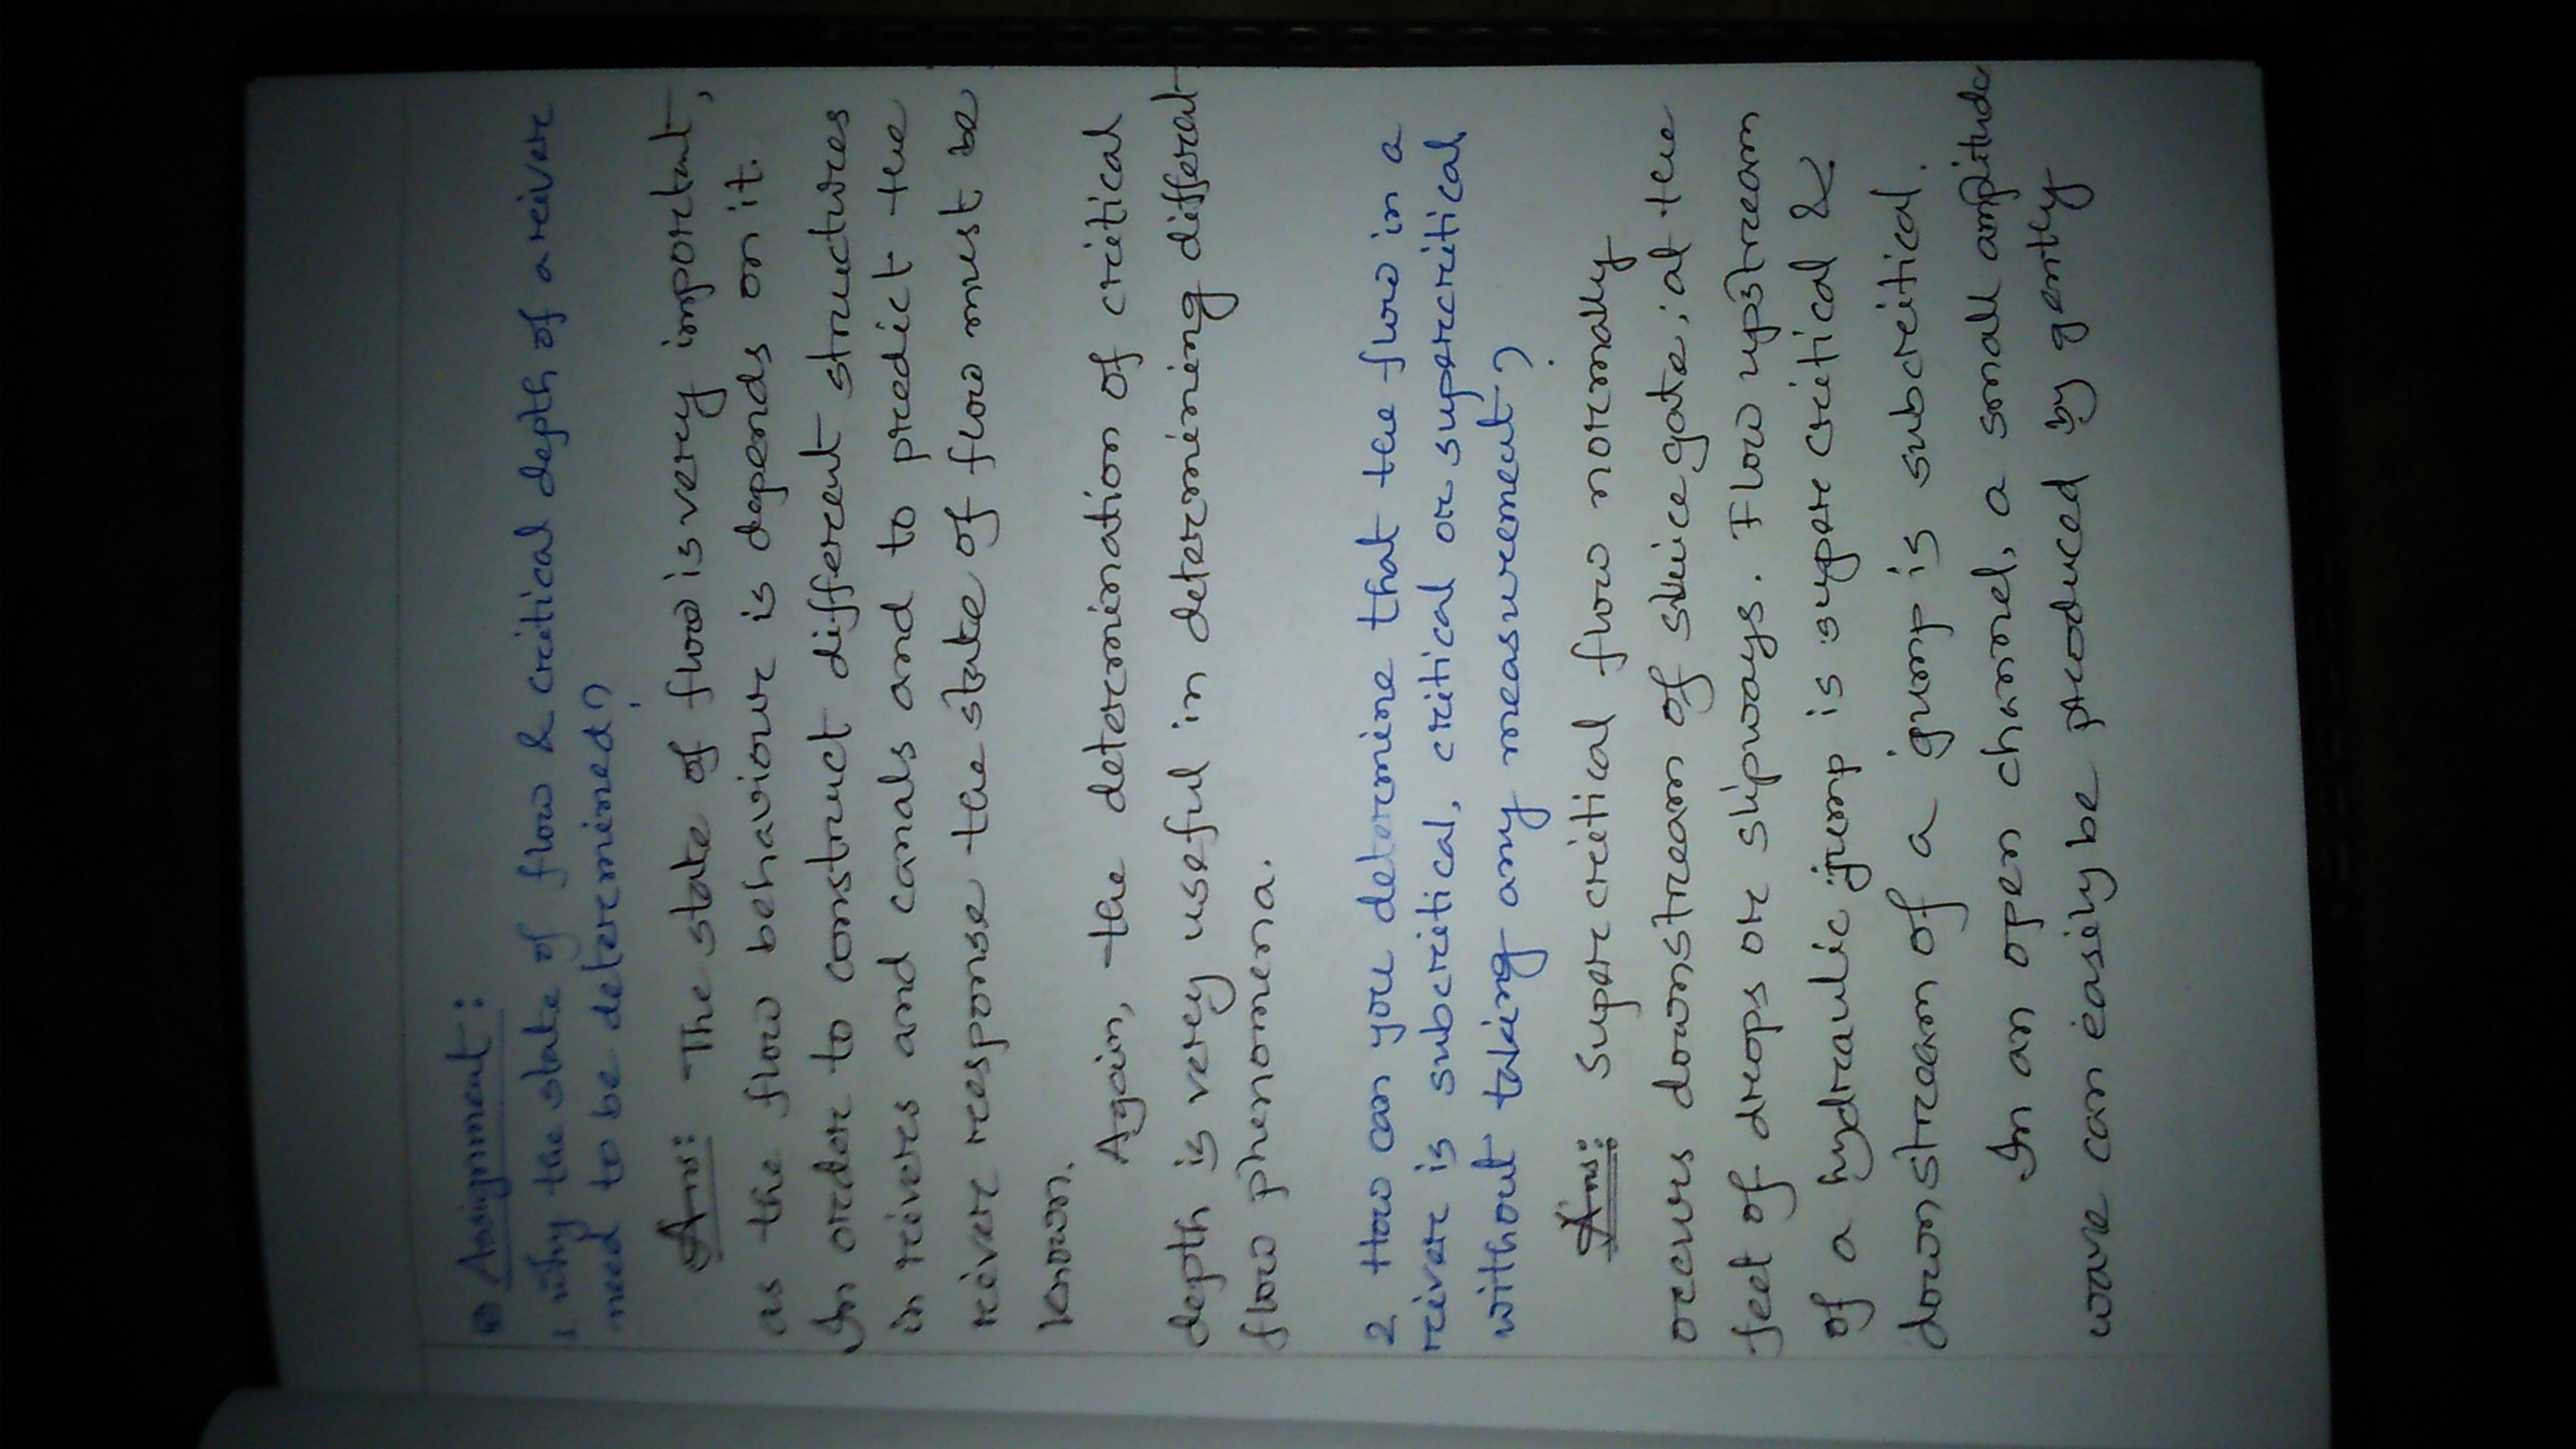 Assignment:
1. Why the state of flow & critical depth of a river
need to be determined?
Ans: The state of flow is very important,
as the flow behaviour is depends on it.
In order to construct different structures
in rivers and canals and to predict the
river response the state of flow must be
known.
Again, the determination of critical
depth is very useful in determining differat
flow phenomena.
2 How can you determine that the flow in a
river is subcritical, critical or supercritical
without taking any measurement?
Ans: Super critical flow normally
occurs downstream of sluice gate; at the
feet of drops or slipways. Flow upstream
of a hydraulic jump is super critical &
downstream of a gump is subcritical.
In an open channel, a small amplitude
wave can easily be produced by gently